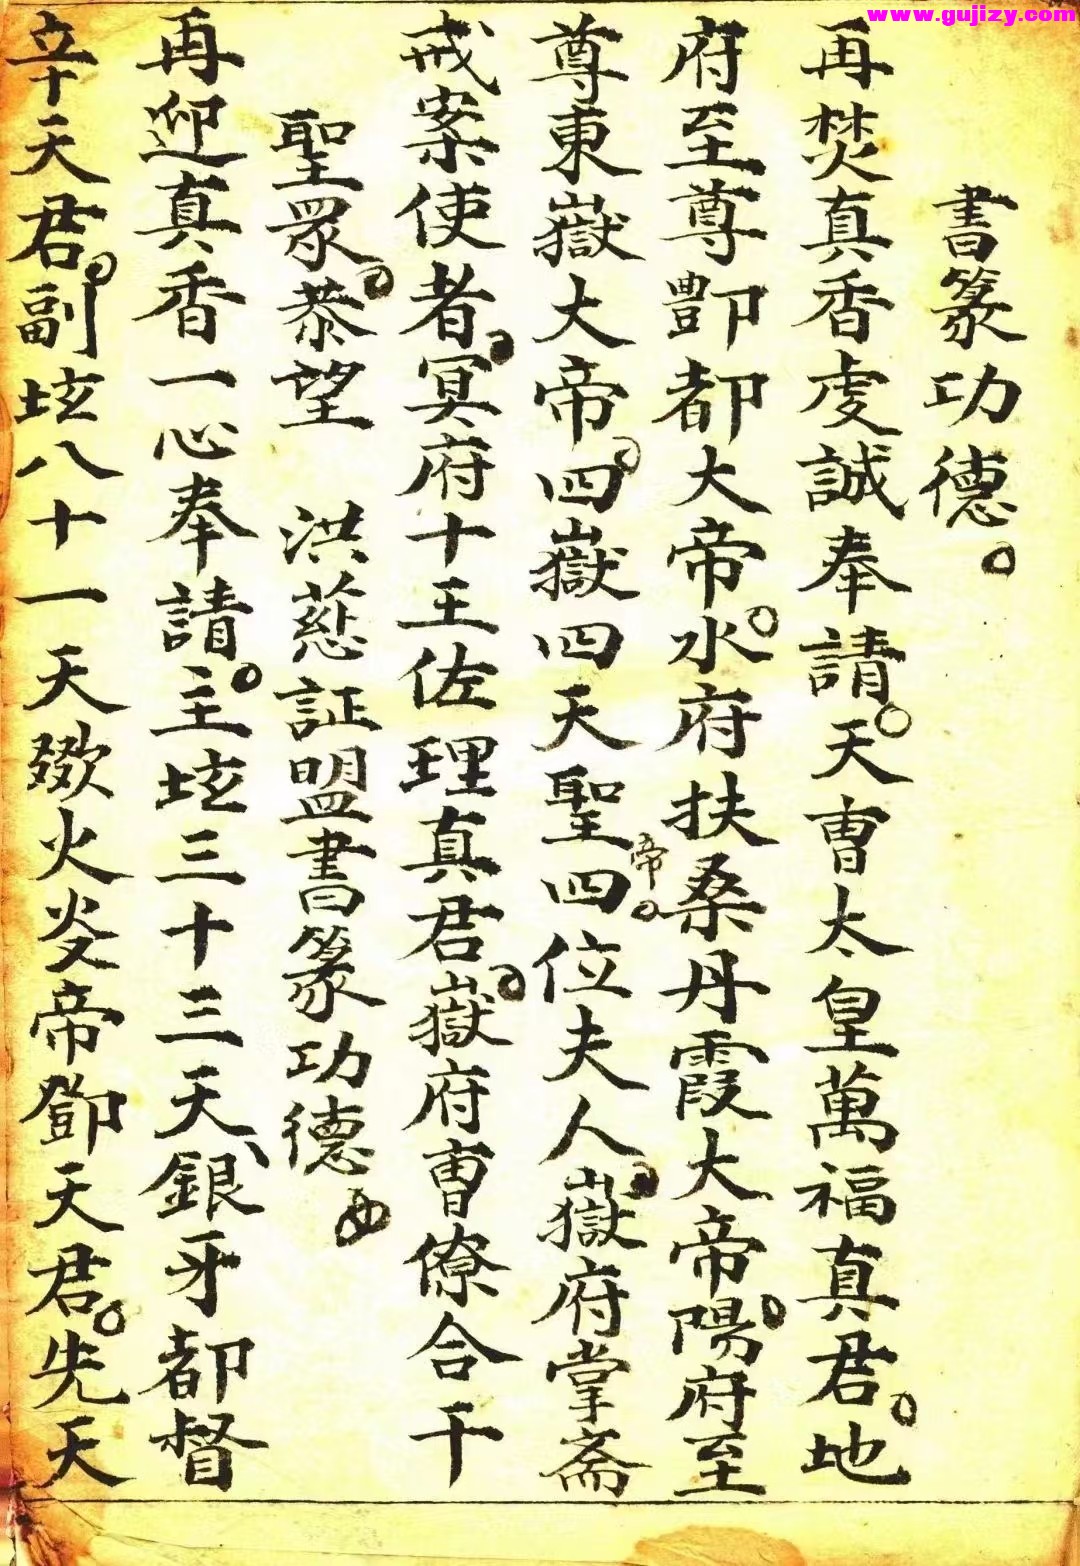 www.gujizy.com
書篆功德。
再焚真香虔誠奉請。天曹太皇萬福真君。地
府至尊酆都大帝。水府扶桑丹霞大帝。陽府至
尊東嶽大帝。四嶽四天聖四帝。位夫人。嶽府掌斋
戒案使者。冥府十王佐理真君。嶽府曹僚合干
聖眾。恭望 洪慈証盟書篆功德
再迎真香一心奉請。主坛三十三天、銀牙都督
辛天君。副坛八十一天欻火炎帝鄧天君。先天